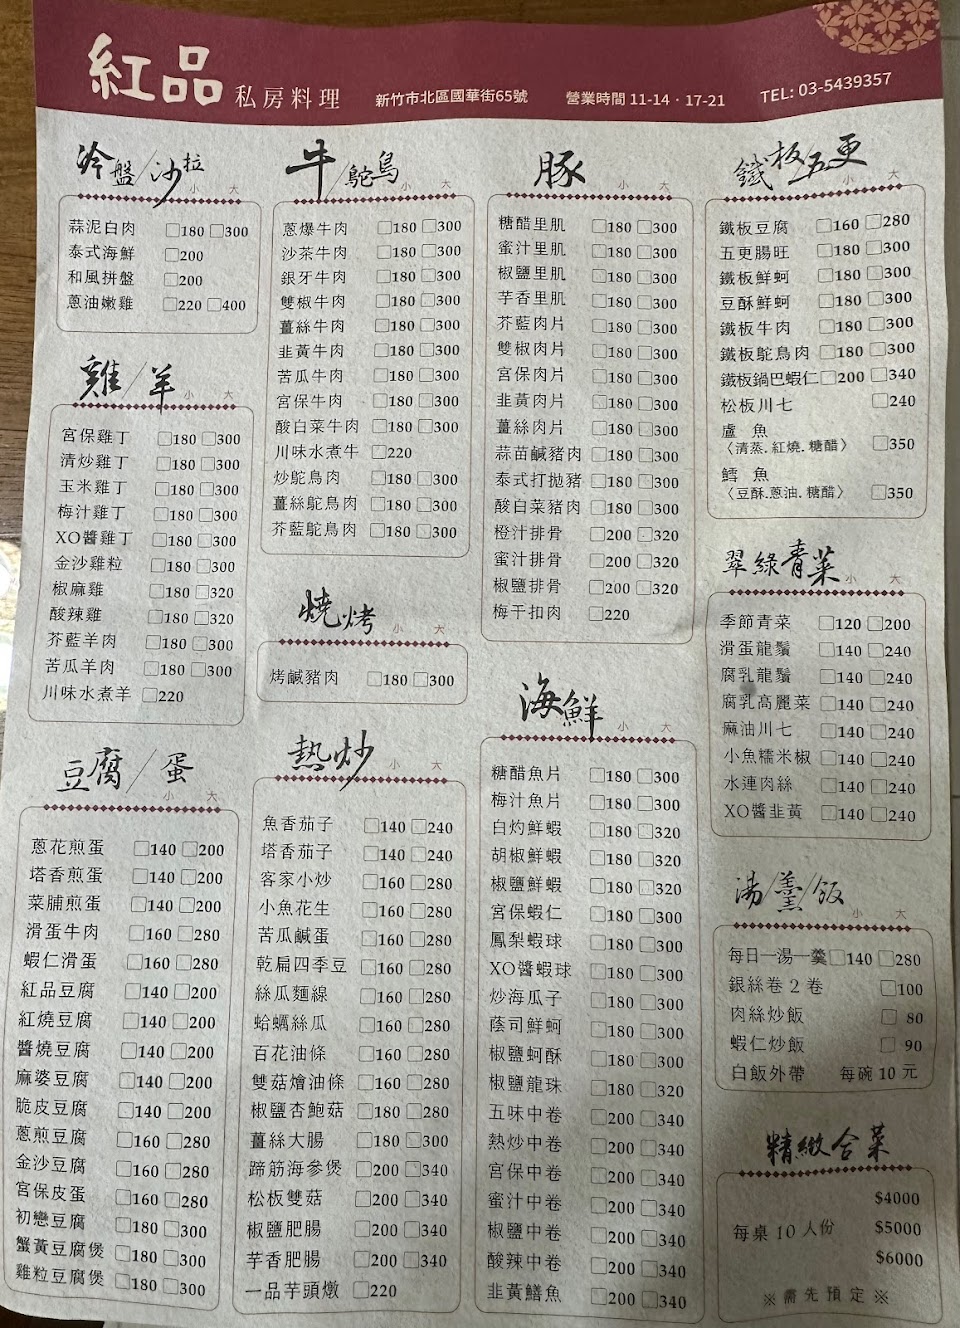 紅品 私房料理 新竹市北區國華街65號 營業時間 11-14．17-21 TEL: 03-5439357
冷盤/沙拉 小 大
蒜泥白肉 □180 □300
泰式海鮮 □200
和風拼盤 □200
蔥油嫩雞 □220 □400
雞/羊 小 大
宮保雞丁 □180 □300
清炒雞丁 □180 □300
玉米雞丁 □180 □300
梅汁雞丁 □180 □300
XO醬雞丁 □180 □300
金沙雞粒 □180 □300
椒麻雞 □180 □320
酸辣雞 □180 □320
芥藍羊肉 □180 □300
苦瓜羊肉 □180 □300
川味水煮羊 □220
豆腐/蛋 小 大
蔥花煎蛋 □140 □200
塔香煎蛋 □140 □200
菜脯煎蛋 □140 □200
滑蛋牛肉 □160 □280
蝦仁滑蛋 □160 □280
紅品豆腐 □140 □200
紅燒豆腐 □140 □200
醬燒豆腐 □140 □200
麻婆豆腐 □140 □200
脆皮豆腐 □140 □200
蔥煎豆腐 □160 □280
金沙豆腐 □160 □280
宮保皮蛋 □160 □280
初戀豆腐 □180 □300
蟹黃豆腐煲 □180 □300
雞粒豆腐煲 □180 □300
牛/鴕鳥 小 大
蔥爆牛肉 □180 □300
沙茶牛肉 □180 □300
銀牙牛肉 □180 □300
雙椒牛肉 □180 □300
薑絲牛肉 □180 □300
韭黃牛肉 □180 □300
苦瓜牛肉 □180 □300
宮保牛肉 □180 □300
酸白菜牛肉 □180 □300
川味水煮牛 □220
炒鴕鳥肉 □180 □300
薑絲鴕鳥肉 □180 □300
芥藍鴕鳥肉 □180 □300
燒烤 小 大
烤鹹豬肉 □180 □300
熱炒 小 大
魚香茄子 □140 □240
塔香茄子 □140 □240
客家小炒 □160 □280
小魚花生 □160 □280
苦瓜鹹蛋 □160 □280
乾扁四季豆 □160 □280
絲瓜麵線 □160 □280
蛤蠣絲瓜 □160 □280
百花油條 □160 □280
雙菇燴油條 □160 □280
椒鹽杏鮑菇 □180 □280
薑絲大腸 □180 □300
蹄筋海參煲 □200 □340
松板雙菇 □200 □340
椒鹽肥腸 □200 □340
芋香肥腸 □200 □340
一品芋頭燉 □220
豚 小 大
糖醋里肌 □180 □300
蜜汁里肌 □180 □300
椒鹽里肌 □180 □300
芋香里肌 □180 □300
芥藍肉片 □180 □300
雙椒肉片 □180 □300
宮保肉片 □180 □300
韭黃肉片 □180 □300
薑絲肉片 □180 □300
蒜苗鹹豬肉 □180 □300
泰式打拋豬 □180 □300
酸白菜豬肉 □180 □300
橙汁排骨 □200 □320
蜜汁排骨 □200 □320
椒鹽排骨 □200 □320
梅干扣肉 □220
海鮮 小 大
糖醋魚片 □180 □300
梅汁魚片 □180 □300
白灼鮮蝦 □180 □320
胡椒鮮蝦 □180 □320
椒鹽鮮蝦 □180 □320
宮保蝦仁 □180 □300
鳳梨蝦球 □180 □300
XO醬蝦球 □180 □300
炒海瓜子 □180 □300
蔭司鮮蚵 □180 □300
椒鹽蚵酥 □180 □300
椒鹽龍珠 □180 □320
五味中卷 □200 □340
熱炒中卷 □200 □340
宮保中卷 □200 □340
蜜汁中卷 □200 □340
椒鹽中卷 □200 □340
酸辣中卷 □200 □340
韭黃鱔魚 □200 □340
鐵板/五更 小 大
鐵板豆腐 □160 □280
五更腸旺 □180 □300
鐵板鮮蚵 □180 □300
豆酥鮮蚵 □180 □300
鐵板牛肉 □180 □300
鐵板鴕鳥肉 □180 □300
鐵板鍋巴蝦仁 □200 □340
松板川七 □240
盧 魚
〈清蒸.紅燒.糖醋〉 □350
鱈 魚
〈豆酥.蔥油.糖醋〉 □350
翠綠青菜 小 大
季節青菜 □120 □200
滑蛋龍鬚 □140 □240
腐乳龍鬚 □140 □240
腐乳高麗菜 □140 □240
麻油川七 □140 □240
小魚糯米椒 □140 □240
水連肉絲 □140 □240
XO醬韭黃 □140 □240
湯/羹/飯 小 大
每日一湯一羹 □140 □280
銀絲卷2卷 □100
肉絲炒飯 □ 80
蝦仁炒飯 □ 90
白飯外帶 每碗 10 元
精緻合菜
$4000
每桌10人份 $5000
$6000
※需先預定※